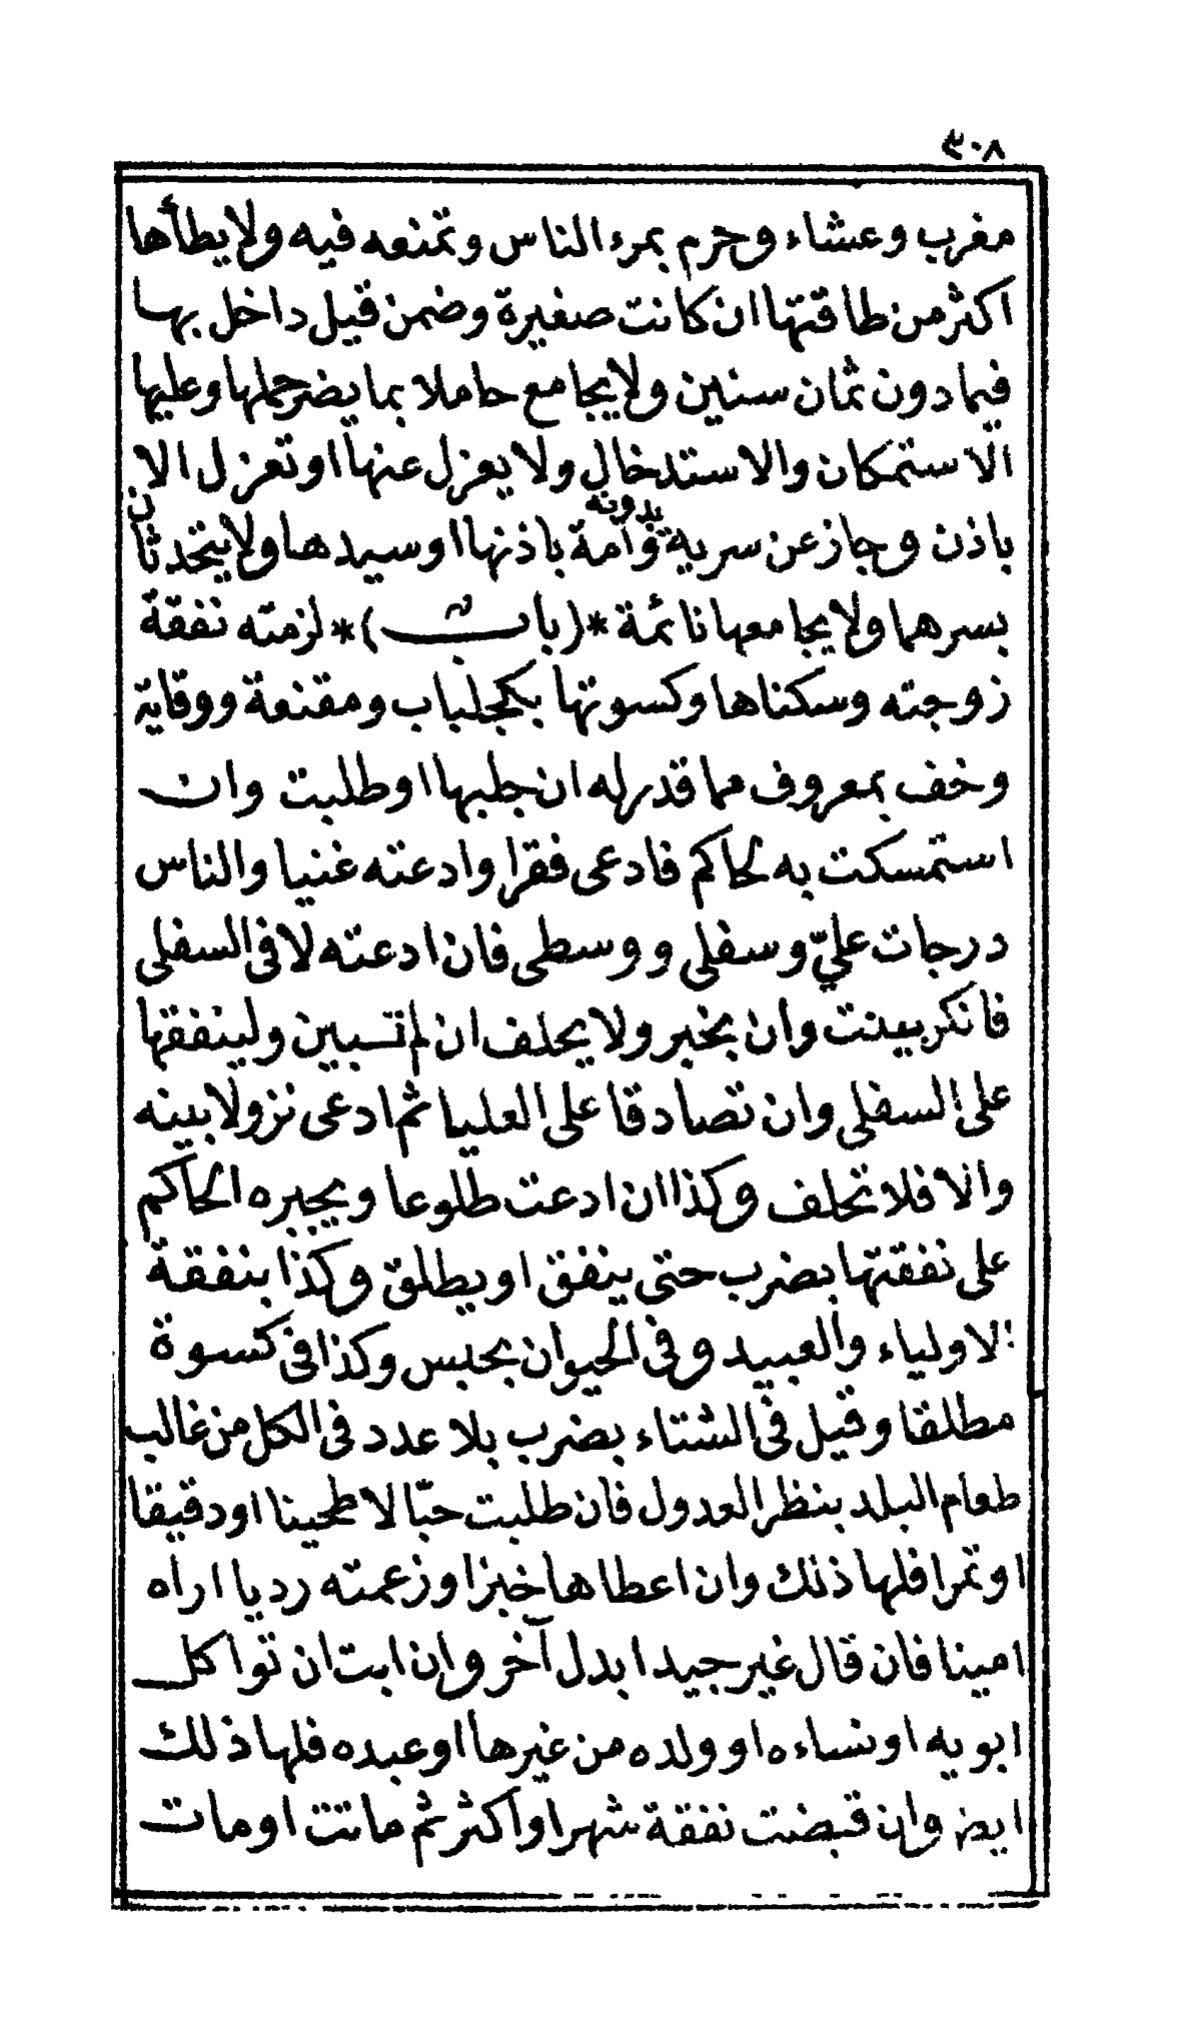 ٣٠٨
مغرب وعشاء وحرم بمرء الناس وتمنعه فيه ولا يطأها
اكثر من طاقتها ان كانت صغيرة وضمن قيل داخل بها
فيما دون ثمان سنين ولا يجامع حاملا بما يضر حملها وعليها
الاستمكان والاستدخال ولا يعزل عنها او تعزل الا
باذن وجاز عن سرية بدونه وأمة باذنها او سيدها ولا يتحدثان
بسرهما ولا يجامعها نائمة *(باب)* لزمته نفقة
زوجته وسكناها وكسوتها بكجلباب ومقنعة ووقاية
وخف بمعروف مما قدر له ان جلبها او طلبت وان
استمسكت به لحاكم فادعى فقرا وادعته غنيا والناس
درجات عليّ وسفلى ووسطى فان ادعته لا فى السفلى
فانكر بينت وان بخبر ولا يحلف ان لم تبين ولينفقها
على السفلى وان تصادقا على العليا ثم ادعى نزولا بينه
والا فلا تحلف وكذا ان ادعت طلوعا ويجبره الحاكم
على نفقتها بضرب حتى ينفق او يطلق وكذا بنفقة
الاولياء والعبيد وفى الحيوان بحبس وكذا فى كسوة
مطلقا وقيل فى الشتاء بضرب بلا عدد فى الكل من غالب
طعام البلد بنظر العدول فان طلبت حبّا لا طحينا او دقيقا
او تمرا فلها ذلك وان اعطاها خبزا وزعمته رديا اراه
امينا فان قال غير جيد ابدل آخر وان ابت ان تواكل
ابويه او نساءه او ولده من غيرها او عبده فلها ذلك
ايض وان قبضت نفقة شهر او أكثر ثم ماتت او مات